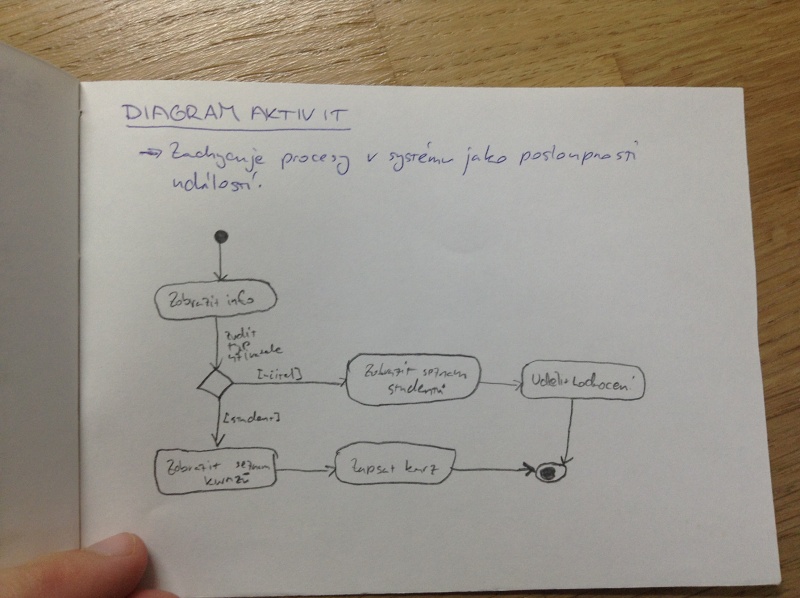 DIAGRAM AKTIVIT
→ Zachycuje procesy v systému jako posloupnosti
událostí.
Zobrazit info
zvolit
typ
uživatele
[učitel]
Zobrazit seznam
studentů
Udělit hodnocení
[student]
Zobrazit seznam
kurzů
Zapsat kurz